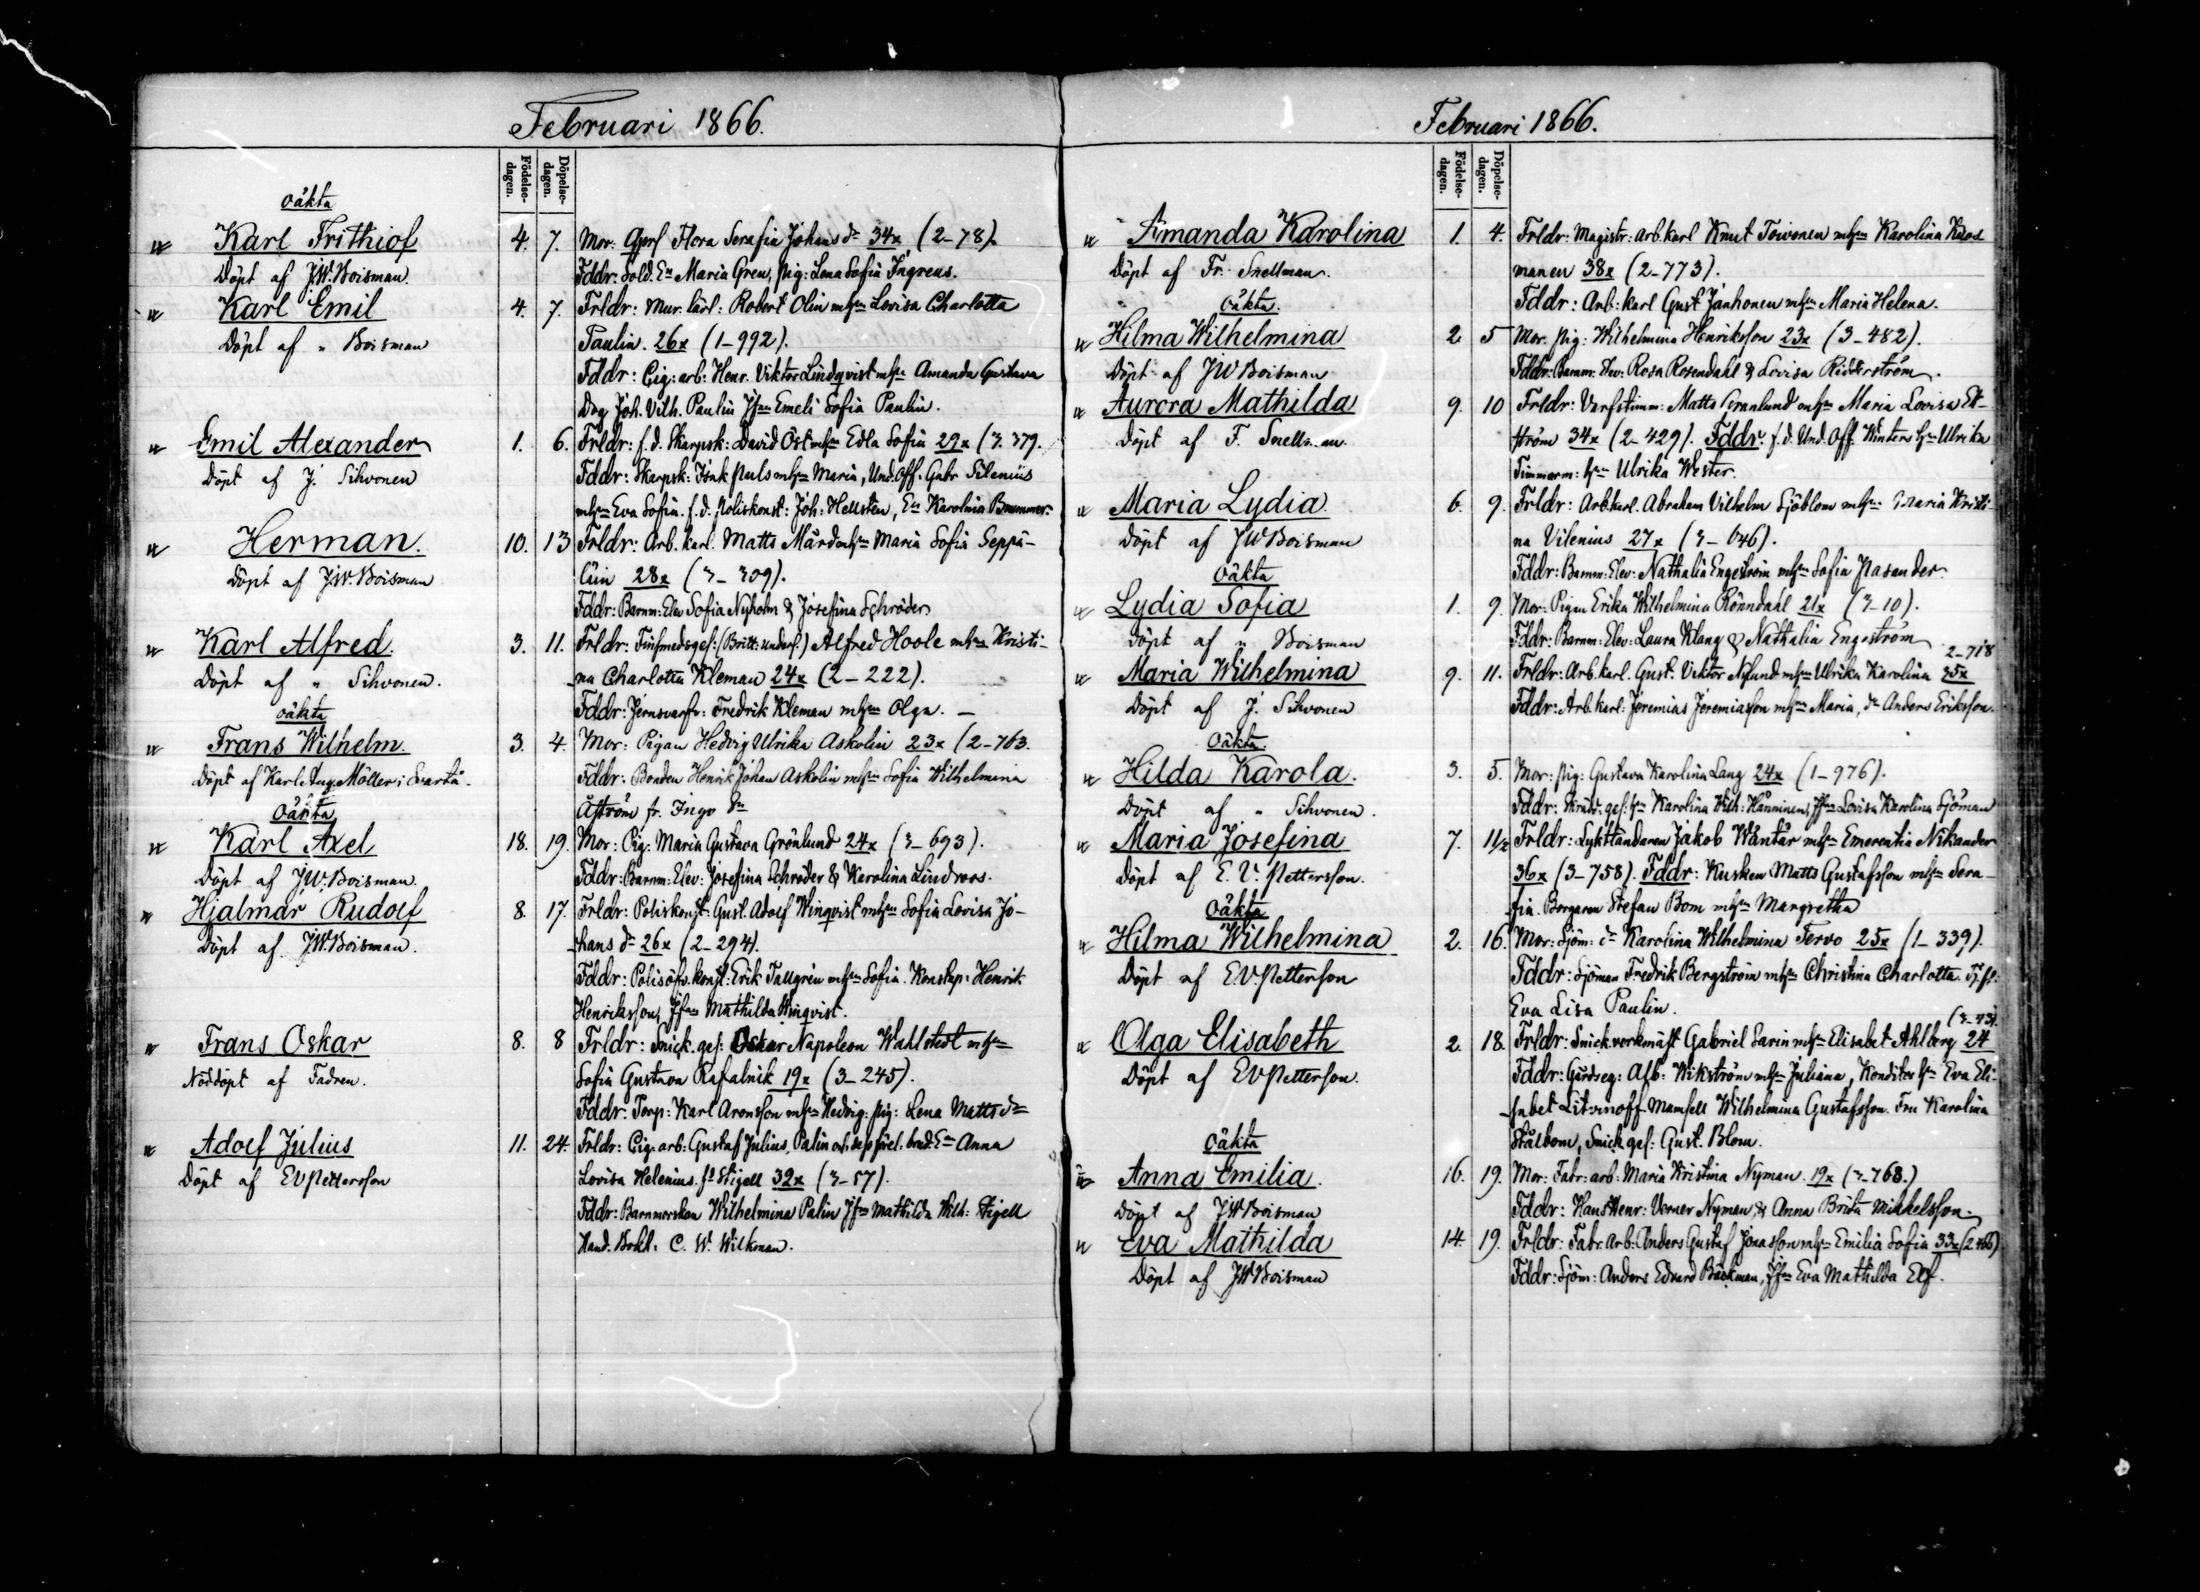 Februari 1866.
Födelse-dagen.
Döpelse-dagen.
oäkta
Karl Frithiof 4. 7. Mor: Flora Serafia Johans dr 34x (2-78).
Döpt af J.W. Boisman. Fddr: Sold. En Maria Gren, pig: Lena Sofia Ingrens.
Karl Emil 4. 7. Frldr: Mur. lärl: Robert Olin mhn Lovisa Charlotta
Döpt af „ Boisman Paulin. 26x (1-992).
Fddr: Cig: arb: Henr. Viktor Lindqvist mhn Amanda Gustava
Drg Joh. Vilh. Paulin Jfrn Emeli Sofia Paulin.
Emil Alexander 1. 6. Frldr: f.d. Skarpsk: David Öst mhn Edla Sofia 29x (3.379.
Döpt af J. Sihvonen Fddr: Skarpsk: Isak Puls mhn Maria, Und.Off: Gabr Silenius
mhn Eva Sofia. f.d. Poliskonst: Joh: Hellsten, En Karolina Brummer.
Herman. 10. 13 Frldr: Arb. karl. Matts Mård mhn Maria Sofia Seppä-
Döpt af J.W. Boisman läin 28x (3-309).
Fddr: Barnm: Elev Sofia Nyholm & Josefina Schröder
Karl Alfred. 3. 11. Frldr: Finsmedsges: (Britt: Unders:) Alfred Hoole mhn Kristi-
Döpt af „ Sihvonen. na Charlotta Kleman 24x (2-222).
Fddr: Jernsvarfv: Fredrik Kleman mhn Olga. —
oäkta
Frans Wilhelm. 3. 4. Mor: Pigan Hedvig Ulrika Askolin 23x (2-763.
Döpt af Karl Aug Möller i Svartå. Fddr: Bonden Henrik Johan Askolin mhn Sofia Wilhelmina
Åström fr. Ingo Sn
Oäkta
Karl Axel 18. 19. Mor: Pig: Maria Gustava Grönlund 24x (3-693).
Döpt af J.W. Boisman. Fddr: Barnm: Elev: Josefina Schröder & Karolina Lindroos.
Hjalmar Rudolf 8. 17. Frldr: Poliskonst: Gust. Adolf Winqvist mhn Sofia Lovisa Jo-
Döpt af J.W. Boisman. hans dr 26x (2-294).
Fddr: Polisöfv. konst: Erik Tallgrén mhn Sofia. Konstap: Henrik
Henriksson, Jfrn Mathilda Winqvist.
Frans Oskar 8. 8 Frldr: Snick. ges: Oskar Napoleon Wahlstedt mhn
Nöddöpt af Fadren. Sofia Gustava Rafalnik 19x (3-245).
Fddr: Torp: Karl Aronsson mhn Hedvig: pig: Lena Matts dr
Adolf Julius 11. 24. Frldr: Cig: arb: Gustaf Julius Palin och
Döpt af E V Pettersson Lovisa Helenius. fd Stigell 32x (3-57).
Fddr: Barnmorskan Wilhelmina Palin Jfrn Mathilda Wilh: Stigell
Hand. Bokh: C. W. Wilkman.
Februari 1866.
Födelse-dagen.
Döpelse-dagen.
Amanda Karolina 1. 4. Frldr: Magistr: arb. karl Knut Toivonen mhn Karolina Klos
Döpt af Fr. Snellman. manen 38x (2-773).
Fddr: Arb: karl Gust Janhonen mhn Maria Helena.
Oäkta.
Hilma Wilhelmina 2 5 Mor. pig: Wilhelmina Henriksson 23x (3-482).
Döpt af J W Boisman Fddr: Barnm: Elev: Rosa Rosendahl & Lovisa Ridderström.
Aurora Mathilda 9. 10 Frldr: Varfstimm: Matts Granlund mhn Maria Lovisa Ek-
Döpt af F. Snellman. ström 34x (2-429). Fddr. f.d. Und. Off. Winters hn Ulrika
Timmerm: hn Ulrika Wester.
Maria Lydia 6. 9. Frldr: Arb. karl. Abraham Vilhelm Sjöblom mhn: Maria Kristi-
Döpt af J W Boisman na Vilenius 27x (3-646).
Fddr: Barnm: Elev: Nathalia Engeström mhn Sofia Nasander
Oäkta
Lydia Sofia 1. 9. Mor: Pigan Erika Wilhelmina Rönndahl 21x (3-10).
Döpt af „ Boisman Fddr: Barnm: Elev: Laura Klang & Nathalia Engeström
2-718
Maria Wilhelmina 9. 11. Frldr: Arb. karl. Gust. Viktor Nylund mhn Ulrika Karolina 35x
Döpt af J. Sihvonen Fddr: Arb. karl: Jeremias Jeremiasson mhn Maria, dr Anders Eriksson.
Oäkta.
Hilda Karola. 3. 5. Mor: pig: Gustava Karolina Lang 24x (1-976).
Döpt af „ Sihvonen. Fddr: Skrädd. ges: hn Karolina Wilh: Hänninen, Jfrn Lovisa Karolina Sjöman
Maria Josefina 7. 11/2 Frldr: Lyktländaren Jakob Wäntär mhn Emerentia Nikander
Döpt af E. V. Pettersson. 36x (3-758). Fddr: Kusken Matts Gustafsson mhn Sera-
fia. Borgaren Stefan Bom mhn Margretha
Oäkta
Hilma Wilhelmina 2. 16. Mor: Sjöm: dr Karolina Wilhelmina Tervo 25x (1-339).
Döpt af E.V. Pettersson Fddr: Sjöman Fredrik Bergström mhn Christina Charlotta.
Eva Lisa Paulin.
(3-43)
Olga Elisabeth 2. 18. Frldr: Snick. verkmäst Gabriel Sarin mhn Elisabet Ahlberg 24
Döpt af E V Pettersson. Fddr: Gårdseg: Alb: Wikström mhn Juliana, Konditor hn Eva Eli-
sabet Litvinoff. Mamsell Wilhelmina Gustafsson. Fru Karolina
Stålbom, Snick. ges: Gust. Blom.
Oäkta
Anna Emilia. 16. 19. Mor: Fabr: arb: Maria Kristina Nyman. 19x (3-768.)
Döpt af J W Boisman Fddr: Hans Henr: Verner Nyman, & Anna Brita Mikkelsson.
Eva Mathilda 14. 19. Frldr: Fabr. Arb: Anders Gustaf Jonasson mhn Emilia Sofia 33x (2-466)
Döpt af J W Boisman Fddr: Sjöm: Anders Edvard Bäckman, Jfrn Eva Mathilda Elf.